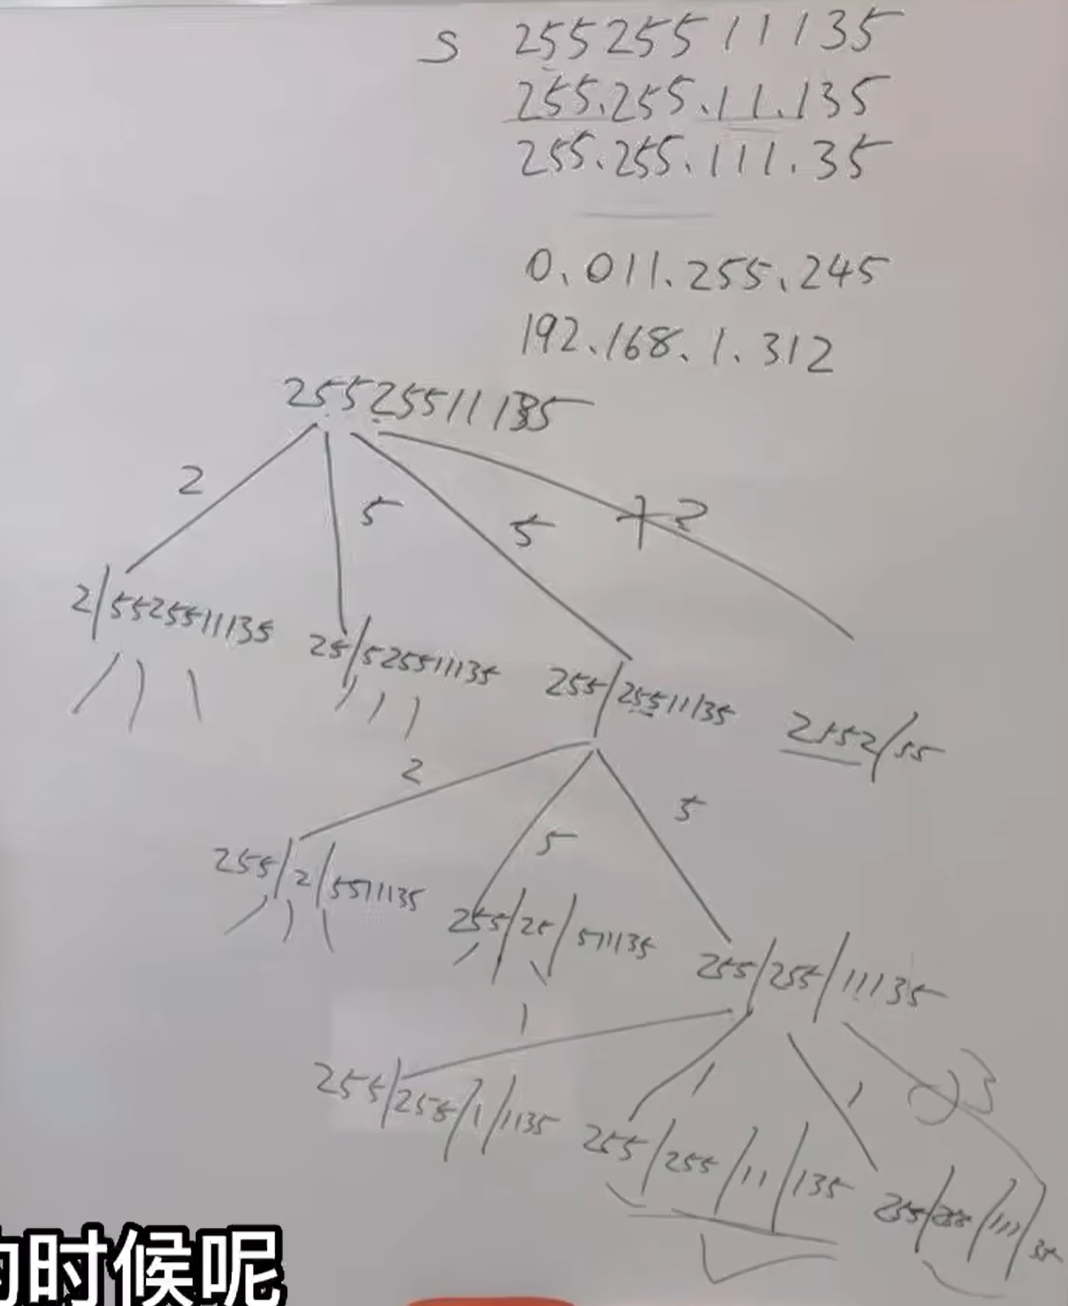 S 25525511135
255.255.11.135
255.255.111.35
0.011.255.245
192.168.1.312
25525511135
2 5 5 2
2/5525511135 25/525511135 255/25511135 2552/55
2 5 5
255/2/5511135 255/25/511135 255/255/11135
1 1 1 3
255/255/1/1135 255/255/11/135 255/255/111/35
的时候呢